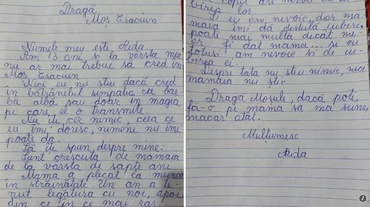 Dragă
Moș Crăciun
Numele meu este Aida.
Am 13 ani și la vârsta mea
nu ar mai trebui să cred în
Moș Crăciun
Nici eu nu știu dacă cred
în bătrânelul simpatic cu barbă
albă sau doar în magia
pe care o transmite
Nu îți cer nimic, ceea ce
eu îmi doresc, nimeni nu îmi
poate da.
să îți spun despre mine:
Sunt crescută de mamaia
de la vârsta de șapte ani
Mama a plecat la muncă
în străinătate Un an a ți-
nut legătura cu noi, apoi
din ce în ce mai rar
copiii au nevoie de iu-
birea lor
Și eu am nevoie, dar ma-
maia îmi dă destulă iubire,
poate mai multă decât mi-
ar fi dat mama... și eu
totuși am nevoie și de iu-
birea ei
Despre tata nu știu nimic, nici
mamaia nu știe
Dragă Moșule, dacă poți,
fă-o pe mama să mă sune,
măcar atât.
Mulțumesc
Aida